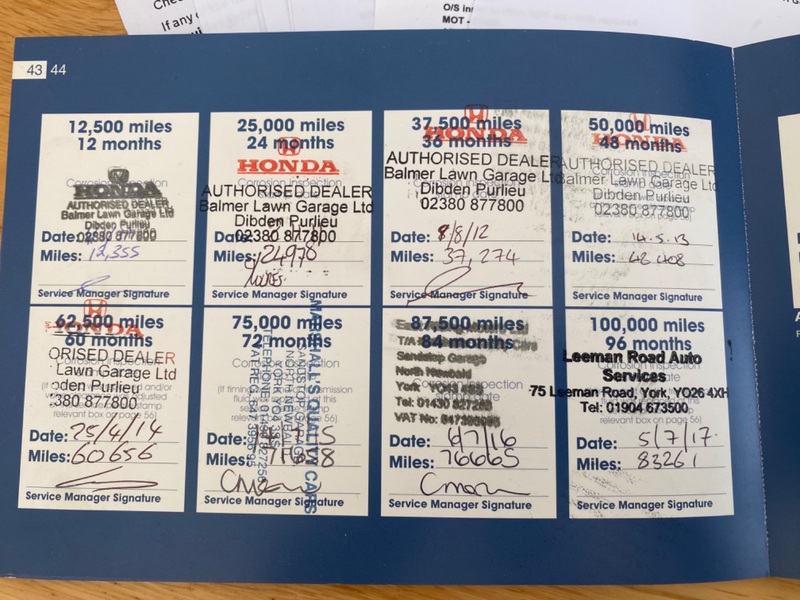 O/S in
MOT -
If any
43 44
12,500 miles
12 months
Corrosion inspection
HONDA
AUTHORISED DEALER
Balmer Lawn Garage Ltd
Dibden Purlieu
02380 877800
Date:
Miles: 12,355
Service Manager Signature
25,000 miles
24 months
HONDA
Corrosion inspection
AUTHORISED DEALER
Balmer Lawn Garage Ltd
Dibden Purlieu
02380 877800
Date:
Miles: 24978
MILES
Service Manager Signature
37,500 miles
HONDA
36 months
AUTHORISED DEALER
Balmer Lawn Garage Ltd
Dibden Purlieu
02380 877800
Date: 8/8/12
Miles: 37,274
Service Manager Signature
50,000 miles
HONDA
48 months
AUTHORISED DEALER
Corrosion inspection
Balmer Lawn Garage Ltd
Dibden Purlieu
02380 877800
Date: 14.5.13
Miles: 48 408
Service Manager Signature
62,500 miles
HONDA
60 months
ORISED DEALER
Lawn Garage Ltd
oden Purlieu
380 877800
relevant box on page 56)
Date: 25/4/14
Miles: 60656
Service Manager Signature
75,000 miles
72 months
MARSHALL'S QUALITY CARS
SANDSTOP GARAGE
NORTH NEWBALD
Date:
Miles:
Service Manager Signature
87,500 miles
84 months
T/A
Cars
Sandstop Garage
North Newbald
York
Tel: 01430 827256
VAT No:
Date: 6/7/16
Miles: 76665
Service Manager Signature
100,000 miles
96 months
Leeman Road Auto
Services
75 Leeman Road, York, YO26 4XH
Tel: 01904 673500
relevant box on page 56)
Date: 5/7/17
Miles: 83261
Service Manager Signature